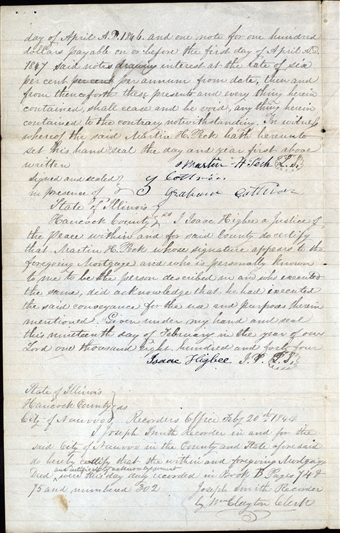 day of April A.D. 1846. and one note for one hundred
dollars payable on or before the first day of April A.D.
1847 said notes drawing interest at the rate of six
per cent per cent per annum from date, then and
from thenceforth these presents and every thing herein
contained, shall cease and be void, any thing herein
contained to the contrary notwithstanding. In witness
whereof the said Martin H. Peck hath hereunto
set his hand & seal the day and year first above
written Martin H. Peck {L.S.}
signed and sealed
in presence of Graham Coltrin
State of Illinois
Hancock County ss I Isaac Higbee a Justice of
the Peace within and for said County do certify
that Martin H. Peck whose signature appears to the
foregoing Mortgage and who is personally known
to me to be the person described in and who executed
the same, did acknowledge that he had executed
the said conveyance for the use and purpose therein
mentioned. Given under my hand and seal
this nineteenth day of February in the year of our
Lord one thousand eight hundred and forty four
Isaac Higbee J.P. {L.S.}
State of Illinois
Hancock County ss
City of Nauvoo Recorders Office Feby 20th 1844
I Joseph Smith Recorder in and for the
said City of Nauvoo in the County and State aforesaid
do hereby certify that the within and foregoing Mortgage
and acknowledgment
Deed were this day duly recorded in Book B Pages 74 &
75 and numbered 302
Joseph Smith Recorder
by Wm Clayton Clerk